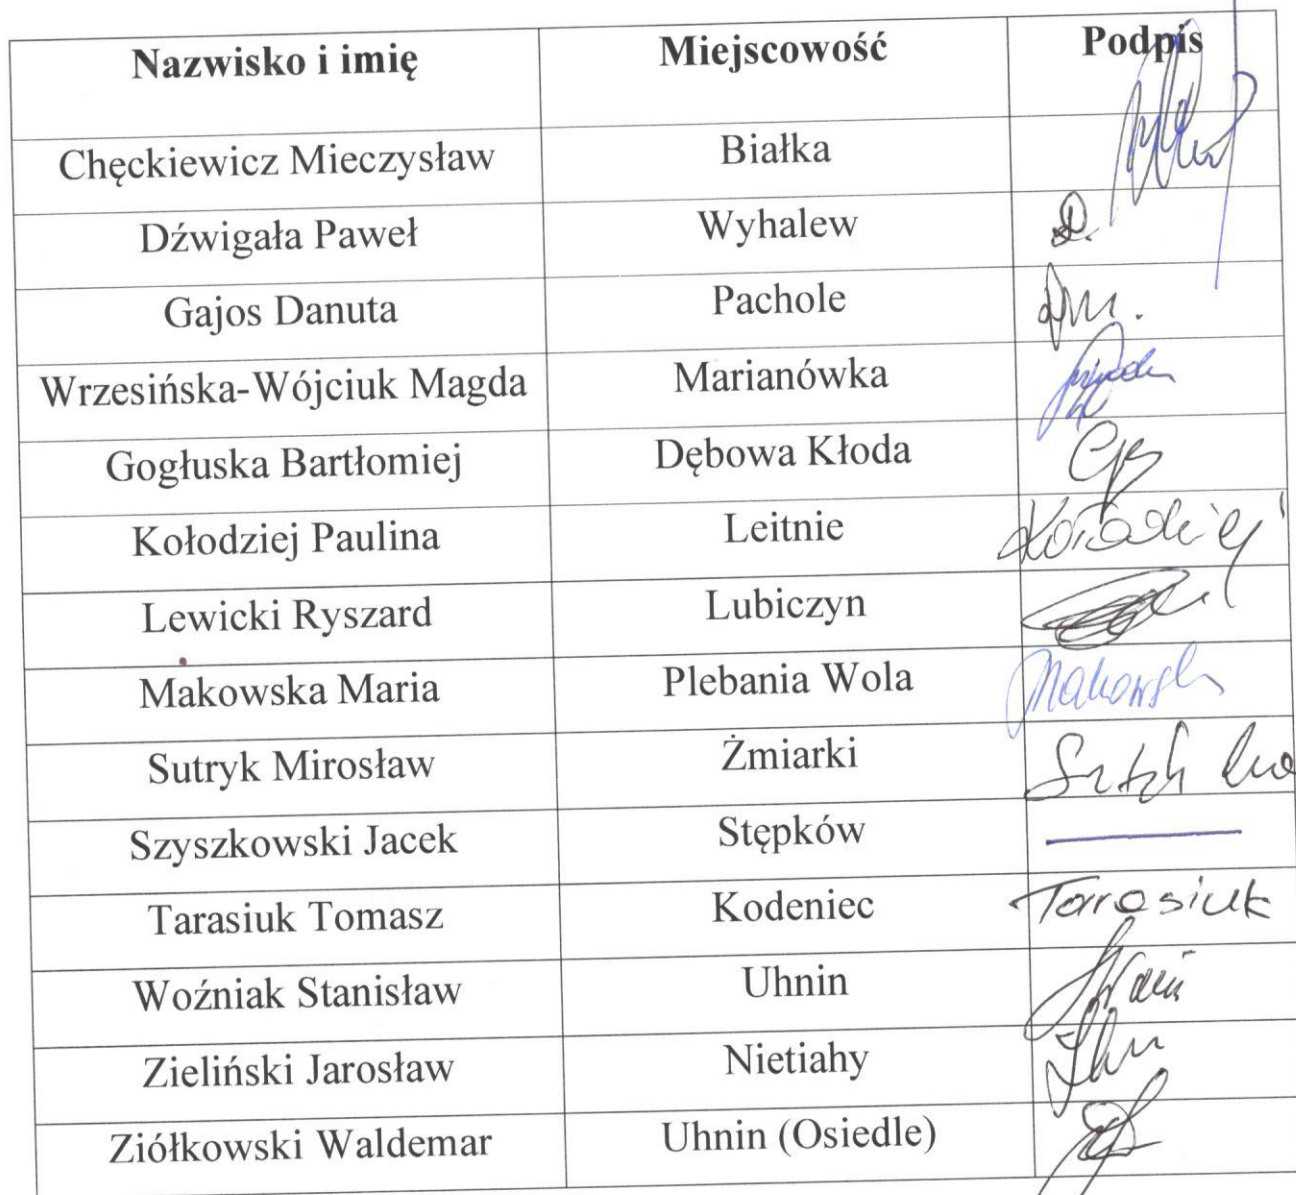 Nazwisko i imię Miejscowość Podpis
Chęckiewicz Mieczysław Białka
Dźwigała Paweł Wyhalew
Gajos Danuta Pachole
Wrzesińska-Wójciuk Magda Marianówka
Gogłuska Bartłomiej Dębowa Kłoda
Kołodziej Paulina Leitnie Kołodziej
Lewicki Ryszard Lubiczyn
Makowska Maria Plebania Wola Makowska
Sutryk Mirosław Żmiarki
Szyszkowski Jacek Stępków
Tarasiuk Tomasz Kodeniec Tarasiuk
Woźniak Stanisław Uhnin
Zieliński Jarosław Nietiahy
Ziółkowski Waldemar Uhnin (Osiedle)